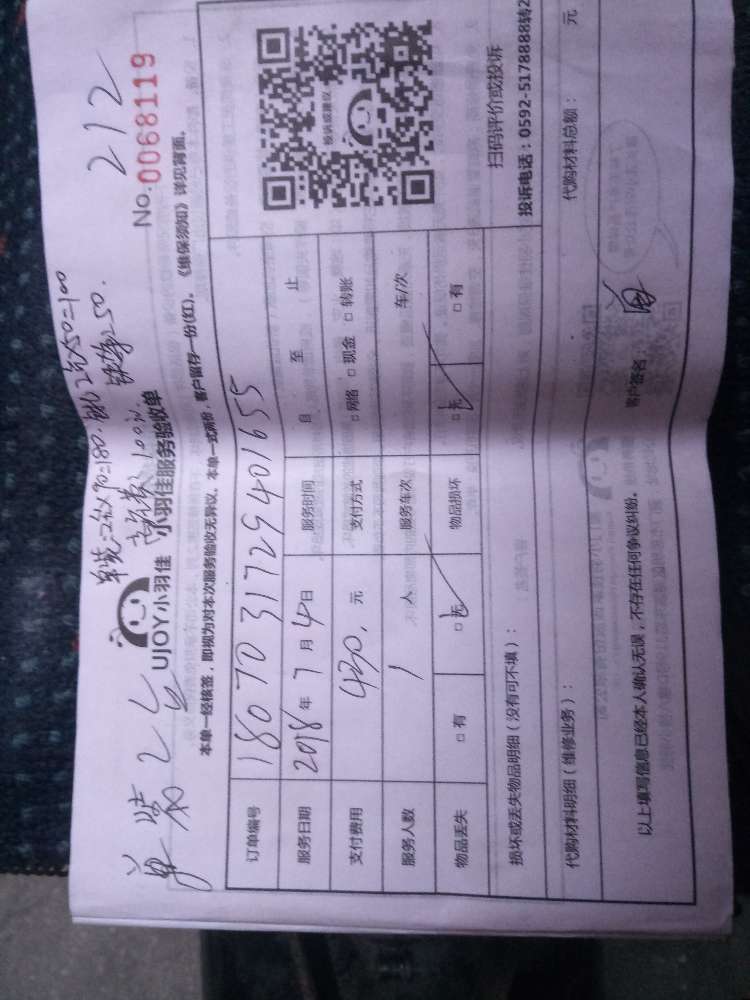 单装=2台×90=180.
2台×50=100
212
单装2台
UJOY小羽佳 小羽佳服务验收单
No.0068119
本单一经核签，即视为对本次服务验收无异议，本单一式两份，客户留存一份(红)。《维保须知》详见背面。
订单编号 1807031729401655
服务日期 2018年7月4日 服务时间 自 至 止
支付费用 430. 元 支付方式 □网络 □现金 □转账
服务人数 1 人 服务车次 车/次
物品丢失 □有 □无 物品损坏 □无 □有
投诉或建议
扫码评价或投诉
投诉电话：0592-5178888转2
损坏或丢失物品明细（没有可不填）：
代购材料明细（维修业务）： 代购材料总额： 元
以上填写信息已经本人确认无误，不存在任何争议纠纷。 客户签名：